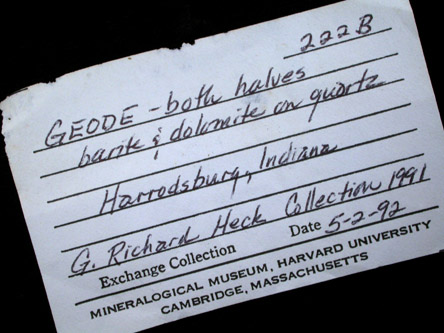 222B
GEODE - both halves
barite & dolomite on quartz
Harrodsburg, Indiana
G. Richard Heck Collection 1991
Exchange Collection Date 5-2-92
MINERALOGICAL MUSEUM, HARVARD UNIVERSITY
CAMBRIDGE, MASSACHUSETTS